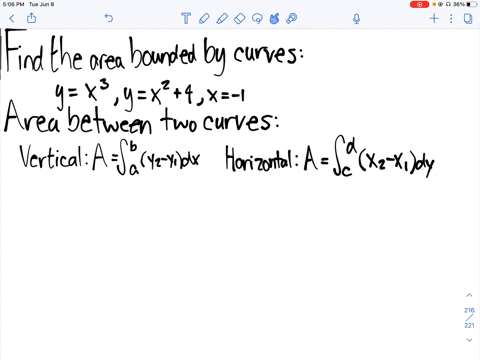 5:06 PM Tue Jun 8
36%
Find the area bounded by curves:
y = x³, y = x² + 4, x = -1
Area between two curves:
Vertical: A = ∫ₐᵇ (y₂ - y₁) dx Horizontal: A = ∫꜀ᵈ (x₂ - x₁) dy
216
/
221